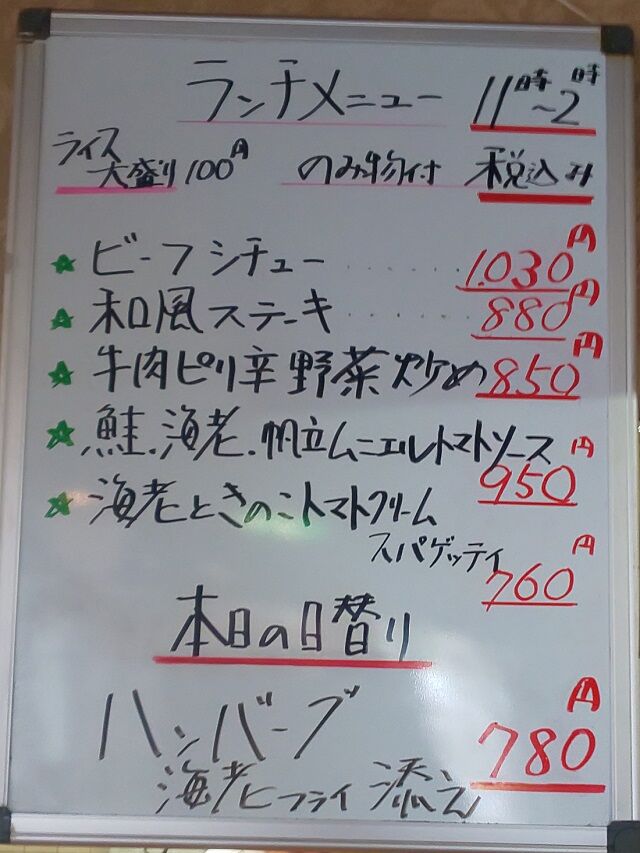 ランチメニュー 11時~2時
ライス大盛り100円 のみ物付 税込み
★ビーフシチュー………1.030円
★和風ステーキ………880円
★牛肉ピリ辛野菜炒め850円
★鮭.海老.帆立ムニエルトマトソース
950円
★海老ときのこトマトクリーム
スパゲッティ
760円
本日の日替り
ハンバーグ
780円
海老フライ添え